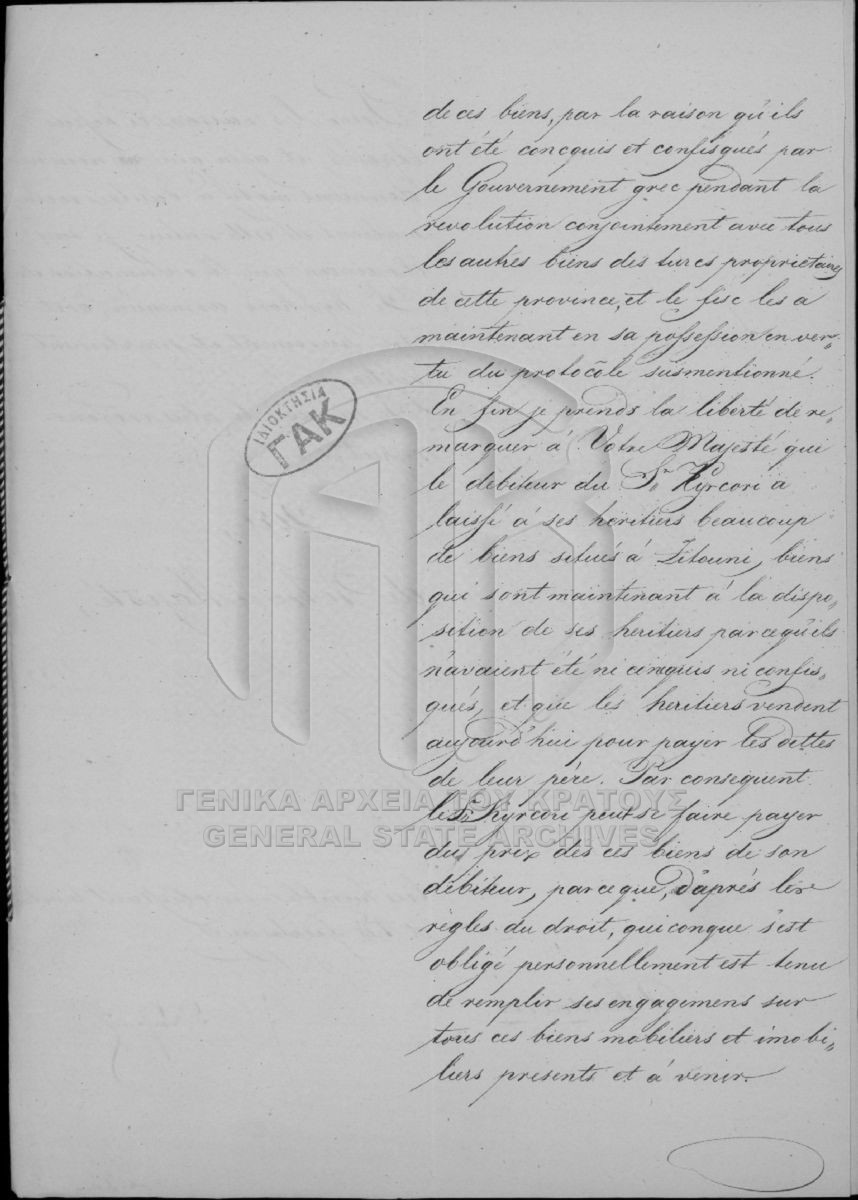 de ces biens, par la raison qu'ils
ont été concquis et confisqués par
le Gouvernement grec pendant la
revolution conjointement avec tous
les autres biens des turcs proprietaires
de cette province, et le fisc les a
maintenant en sa possession en ver„
tu du protocôle susmentionné.
En fin je prends la liberté de re„
marquer á Votre Majesté qui
le debiteur du Sr. Kyrcori a
laissé á ses heritiers beaucoup
de biens situés á Zitouni, biens
qui sont maintenant á la dispo„
sition de ses heritiers parcequ'ils
n'avaient été ni conquis ni confis„
qués, et que les heritiers vendent
aujourd'hui pour payer les dettes
de leur père. Par consequent
le Sr. Kyrcori peut se faire payer
du prix des ces biens de son
débiteur, parceque, d'aprés les
règles du droit, quiconque s'est
obligé personnellement est tenu
de remplir ses engagemens sur
tous ces biens mobiliers et imobi„
liers presents et á venir.
ΙΔΙΟΚΤΗΣΙΑ
ΓΑΚ
ΓΕΝΙΚΑ ΑΡΧΕΙΑ ΤΟΥ ΚΡΑΤΟΥΣ
GENERAL STATE ARCHIVES